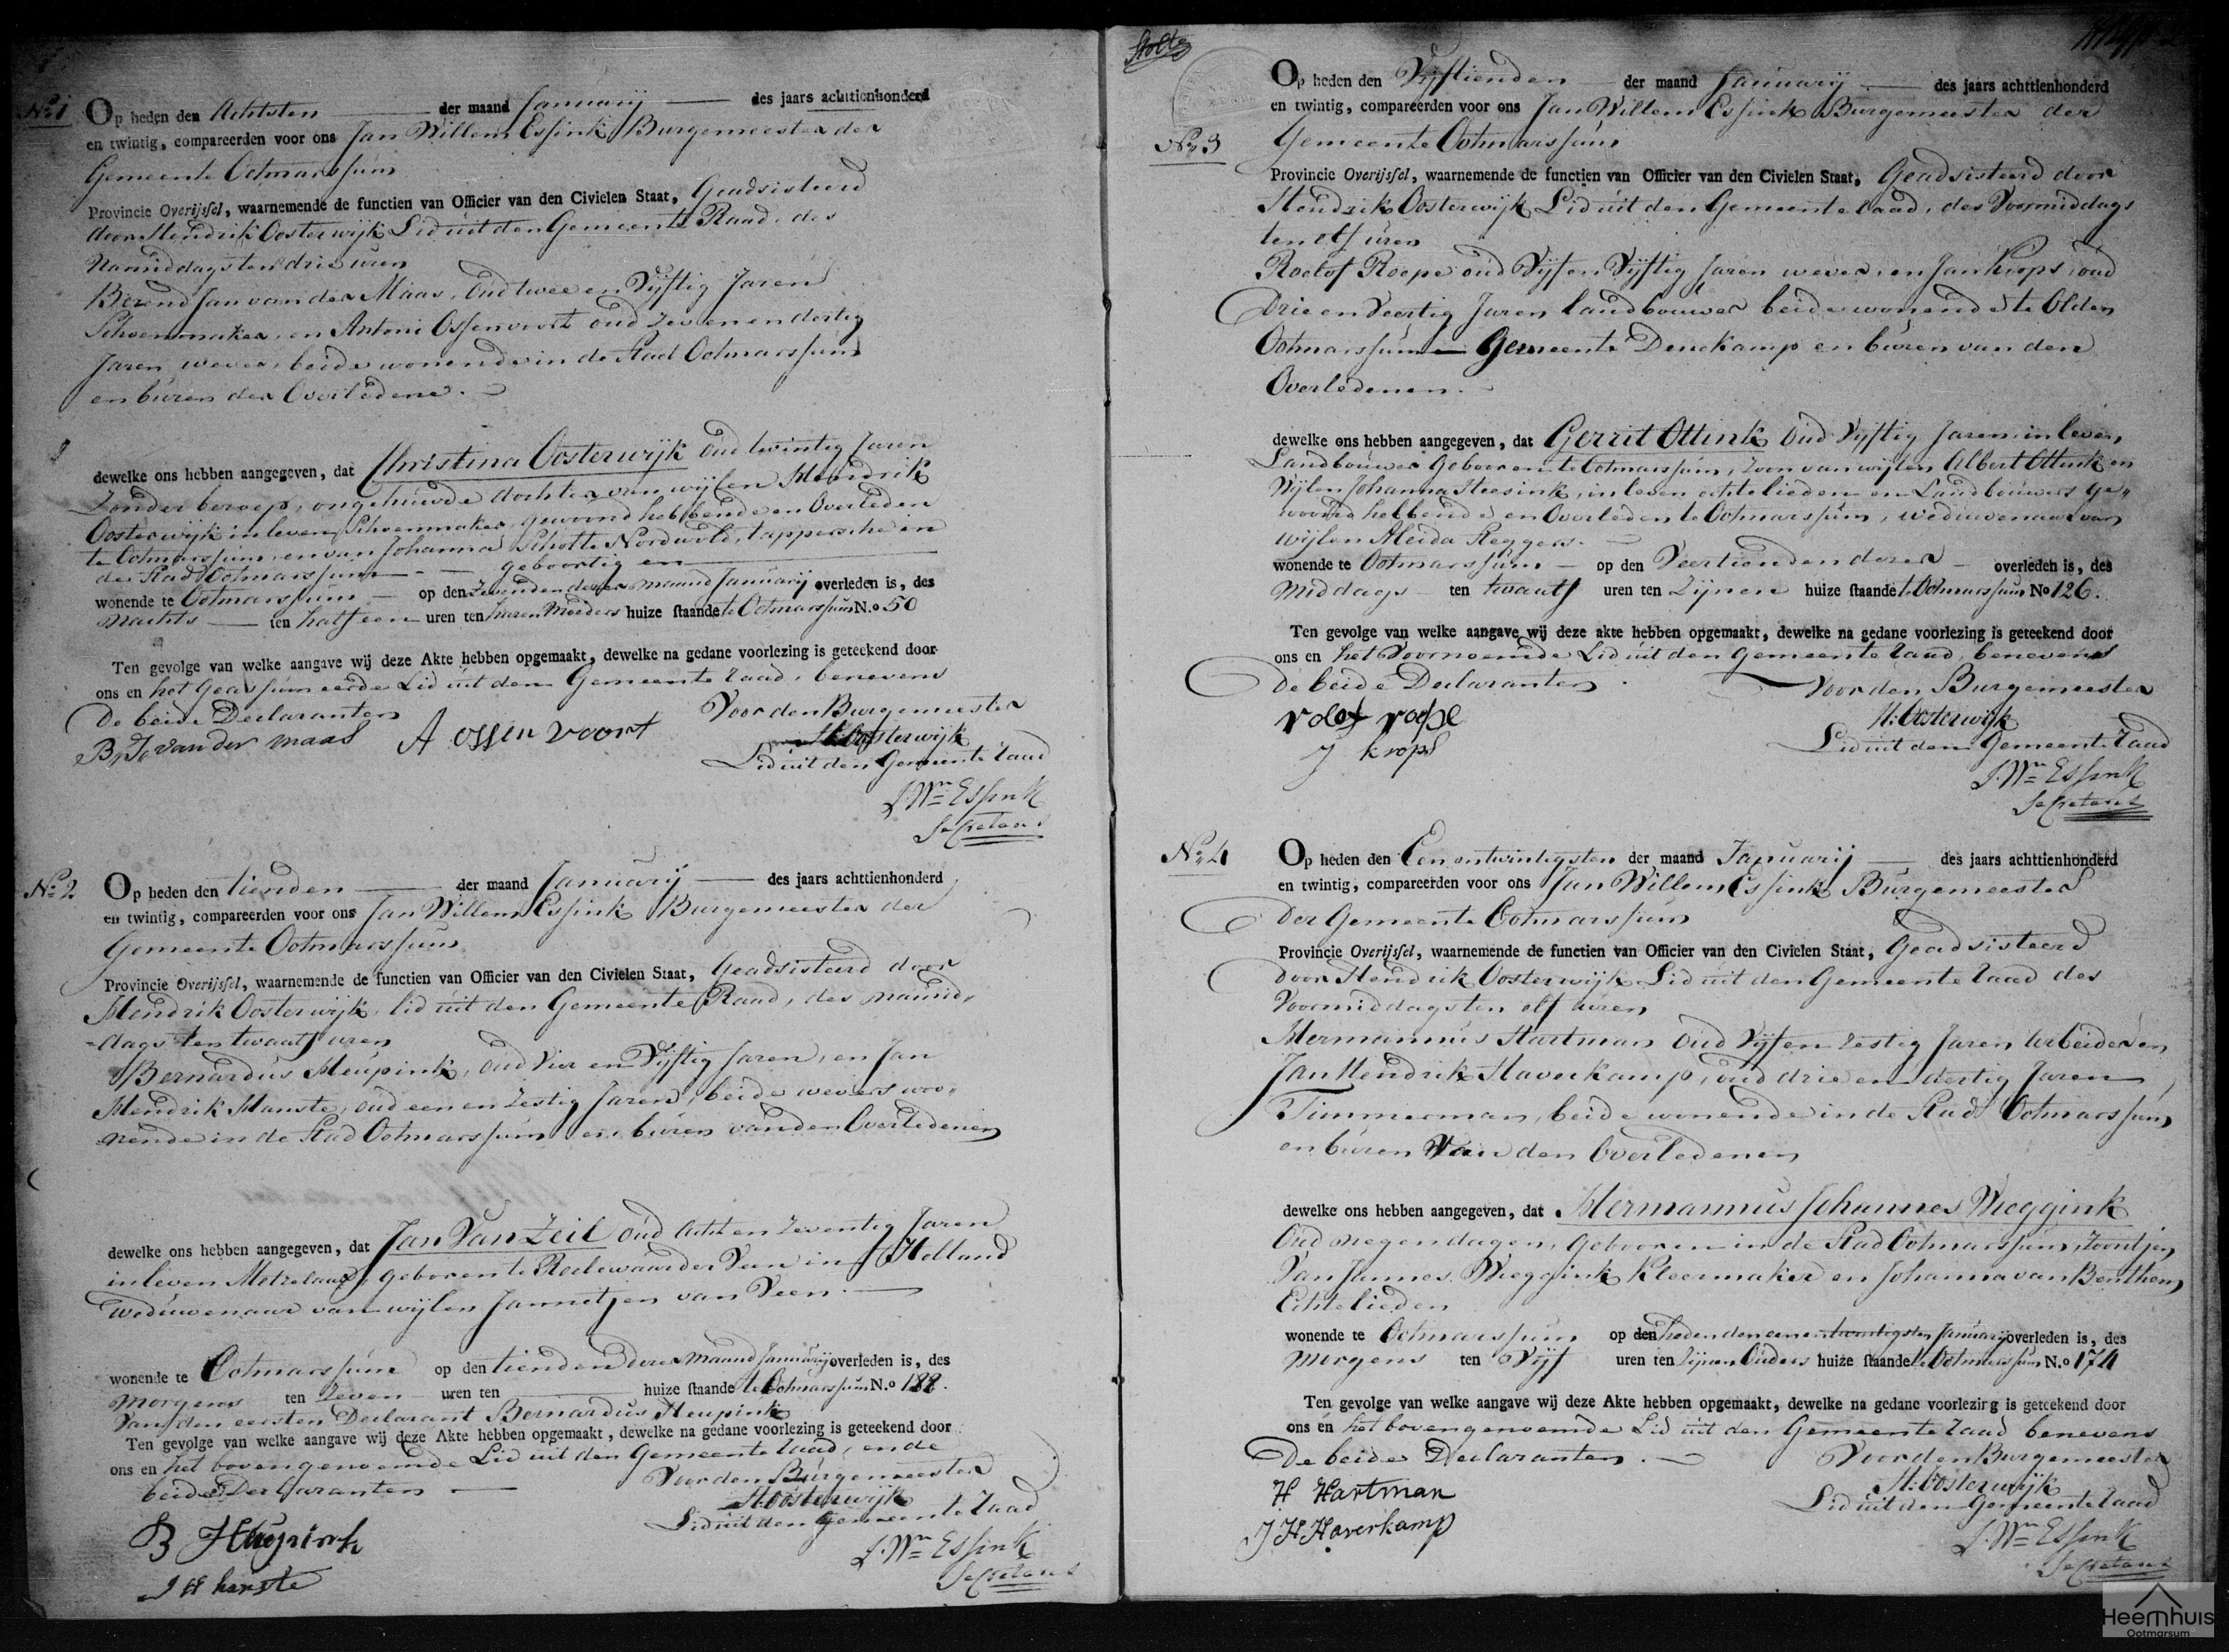 No. 1
Op heden den Achtsten der maand Januarij des jaars achttienhonderd
en twintig, compareerden voor ons Jan Willem Essink Burgemeester der
Gemeente Ootmarssum
Provincie Overijssel, waarnemende de functien van Officier van den Civielen Staat, Geadsisteerd
door Hendrik Oosterwijk Lid uit den Gemeente Raad, des
Namiddags ten drie uren
Berend Jan van der Maas, Oud twee en Vijftig Jaren
Schoenmaker, en Antoni Ossenvoort oud zeven en dertig
Jaren wever, beide wonende in de Stad Ootmarssum
en buren der Overledene.
dewelke ons hebben aangegeven, dat Christina Oosterwijk Oud twintig Jaren
Zonder beroep, ongehuwde dochter van wijlen Hendrik
Oosterwijk in leven Schoenmaker, gewoond hebbende en Overleden
te Ootmarssum en van Johanna Scholte Nordwold, tappersche en
der Stad Ootmarssum geboortig en
wonende te Ootmarssum op den Zevenden dezer maand Januarij overleden is, des
nachts ten half een uren ten haren Moeders huize staande te Ootmarssum N.o 50
Ten gevolge van welke aangave wij deze Akte hebben opgemaakt, dewelke na gedane voorlezing is geteekend door
ons en het Geassumeerde Lid uit den Gemeente raad, benevens
De beide Declaranten
Voor den Burgemeester
B, J, van der maas A ossen voort
H. Oosterwijk
Lid uit den Gemeente raad
J. Wm Essink
Secretaris
No. 2
Op heden den tienden der maand Januarij des jaars achttienhonderd
en twintig, compareerden voor ons Jan Willem Essink Burgemeester der
Gemeente Ootmarssum
Provincie Overijssel, waarnemende de functien van Officier van den Civielen Staat, Geadsisteerd door
Hendrik Oosterwijk, lid uit den Gemeente Raad, des namid,
-dags ten twaalf uren
Bernardus Heupink, oud Vier en Vijftig Jaren, en Jan
Hendrik Hanste, oud een en Zestig Jaren, beide wevers wo-
nende in de Stad Ootmarssum en buren van den Overledenen
dewelke ons hebben aangegeven, dat Jan Van Zeil oud Acht en Zeventig Jaren
in leven Metzelaar, geboren te Roelewaarder Veen in Holland
weduwenaar van wijlen Jannetjen van Veen.
wonende te Ootmarssum op den tienden dezer maand Januarij overleden is, des
morgens ten Zeven uren ten huize staande te Ootmarssum N.o 188.
Van den eersten Declarant Bernardus Heupink
Ten gevolge van welke aangave wij deze Akte hebben opgemaakt, dewelke na gedane voorlezing is geteekend door
ons en het bovengenoemde Lid uit den Gemeente raad, en de
beide Declaranten
Voor den Burgemeester
H. Oosterwijk
Lid uit den Gemeente raad
B Heupink
J H hanste
J. Wm Essink
Secretaris
No. 3
Op heden den Vijftienden der maand Januarij des jaars achttienhonderd
en twintig, compareerden voor ons Jan Willem Essink Burgemeester der
Gemeente Ootmarssum
Provincie Overijssel, waarnemende de functien van Officier van den Civielen Staat, Geadsisteerd door
Hendrik Oosterwijk Lid uit den Gemeente raad, des Voormiddags
ten elf uren
Roelof Roepe oud Vijf en Vijftig Jaren wever, en Jan Krops, oud
Drie en Veertig Jaren landbouwer beide wonende te Olden
Ootmarssum Gemeente Denekamp en buren van den
Overledenen.
dewelke ons hebben aangegeven, dat Gerrit Ottink Oud Vijftig Jaren in leven
Landbouwer Geboren te Ootmarssum, Zoon van wijlen Albert Ottink en
Wijlen Johanna Heesink, in leven echtelieden en Landbouwers ge-
woond hebbende en Overleden te Ootmarssum, weduwenaar van
wijlen Aleida Reggers.
wonende te Ootmarssum op den Veertienden dezer overleden is, des
Middags ten twaalf uren ten Zijnen huize staande te Ootmarssum No 126.
Ten gevolge van welke aangave wij deze akte hebben opgemaakt, dewelke na gedane voorlezing is geteekend door
ons en het Voornoemde Lid uit den Gemeente raad, benevens
De beide Declaranten.
Voor den Burgemeester
rolof roepe
H. Oosterwijk
J krops
Lid uit den Gemeente raad
J. Wm Essink
Secretaris
No. 4
Op heden den Een en twintigsten der maand Januarij des jaars achttienhonderd
en twintig, compareerden voor ons Jan Willem Essink Burgemeester
der Gemeente Ootmarssum
Provincie Overijssel, waarnemende de functien van Officier van den Civielen Staat, Geadsisteerd
door Hendrik Oosterwijk Lid uit den Gemeente raad des
Voormiddags ten elf uren
Hermannus Hartman Oud Vijf en zestig Jaren Arbeider en
Jan Hendrik Haverkamp, oud drie en dertig Jaren
Timmerman, beide wonende in de Stad Ootmarssum
en buren Van den Overledenen
dewelke ons hebben aangegeven, dat Hermannus Johannes Wieggink
Oud negen dagen, Geboren in de Stad Ootmarssum, Zoontjen
Van Jannes Wieggink Kleermaker en Johanna van Benthem
Echtelieden
wonende te Ootmarssum op den heden den een en twintigsten Januarij overleden is, des
Morgens ten Vijf uren ten Zijnen Ouders huize staande te Ootmarssum N.o 174
Ten gevolge van welke aangave wij deze Akte hebben opgemaakt, dewelke na gedane voorlezing is geteekend door
ons en het bovengenoemde Lid uit den Gemeente raad benevens
De beide Declaranten.
Voor den Burgemeester
H Hartman
H. Oosterwijk
Lid uit den Gemeente raad
J H Haverkamp
J. Wm Essink
Secretaris
Heemhuis
Ootmarsum